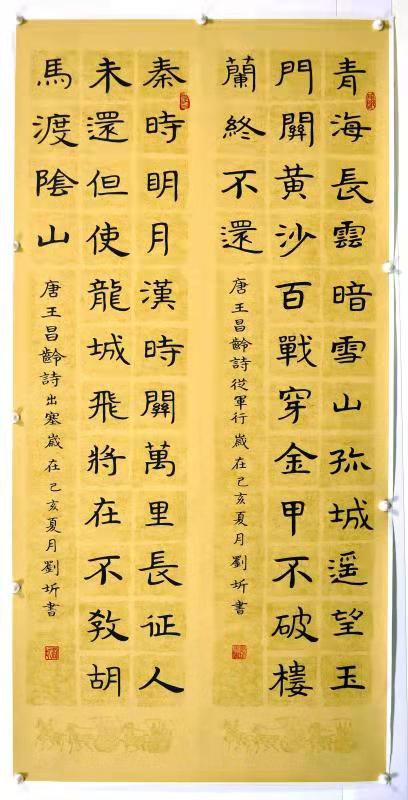 青海長雲暗雪山孤城遥望玉
門關黄沙百戰穿金甲不破樓
蘭終不還
唐王昌齡詩從軍行歲在己亥夏月劉圻書
秦時明月漢時關萬里長征人
未還但使龍城飛將在不教胡
馬渡陰山
唐王昌齡詩出塞歲在己亥夏月劉圻書